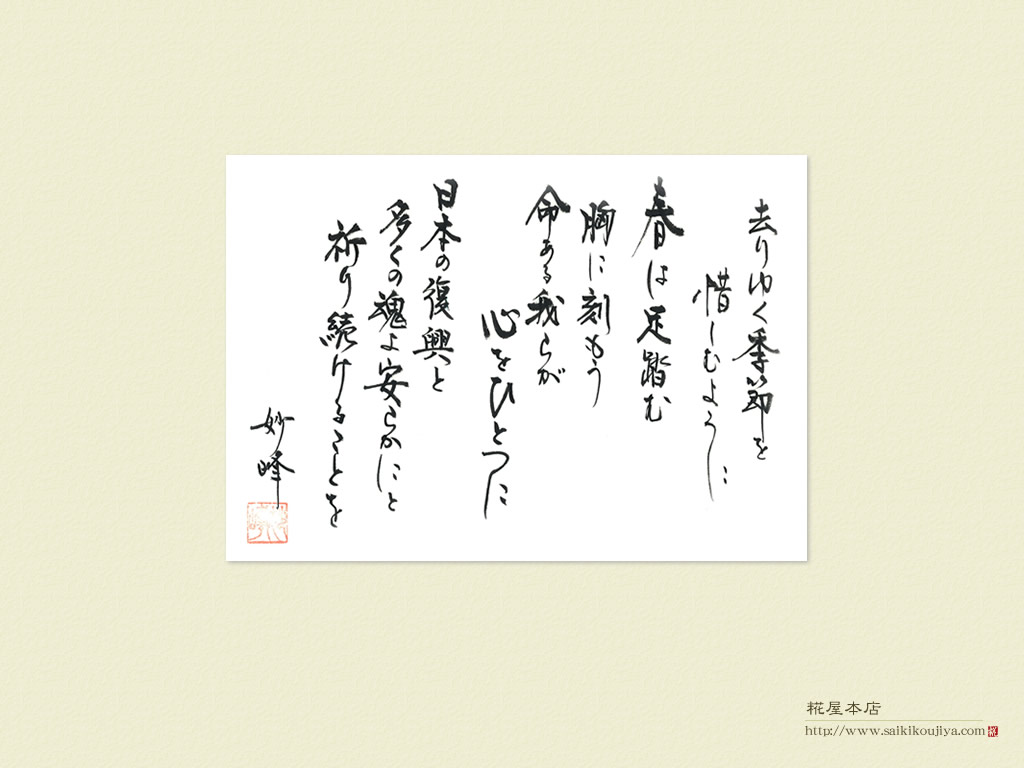 去りゆく季節を
惜しむように
春は足踏む
胸に刻もう
命ある我らが
心をひとつに
日本の復興と
多くの魂よ安らかにと
祈り続けることを
妙峰
糀屋本店
http://www.saikikoujiya.com
糀